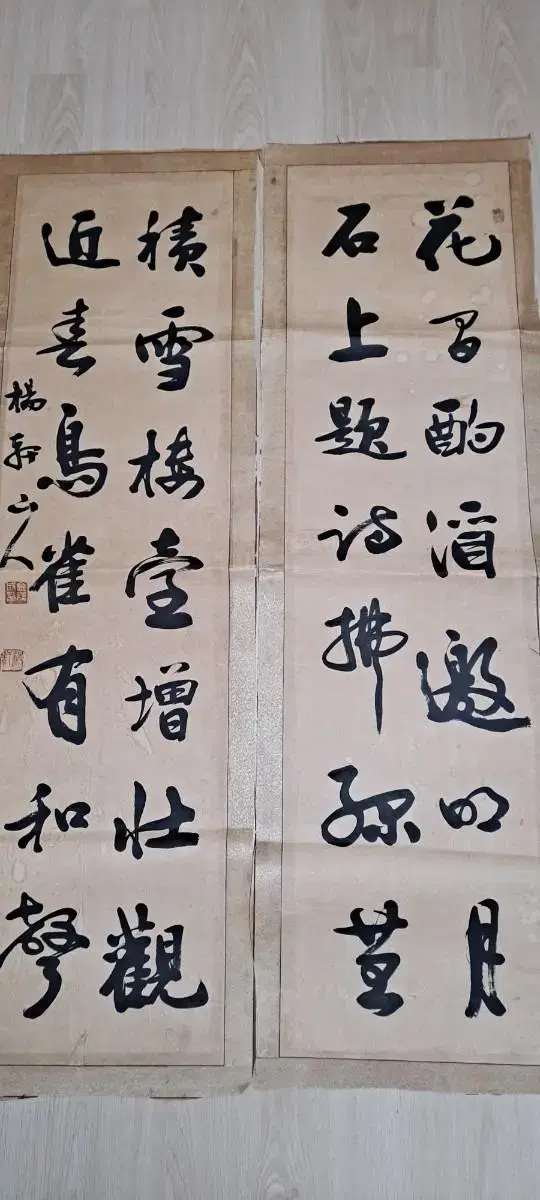 花間酌酒邀明月
石上題詩拂綠苔
積雪樓臺增壯觀
近春鳥雀有和聲
楊 山人